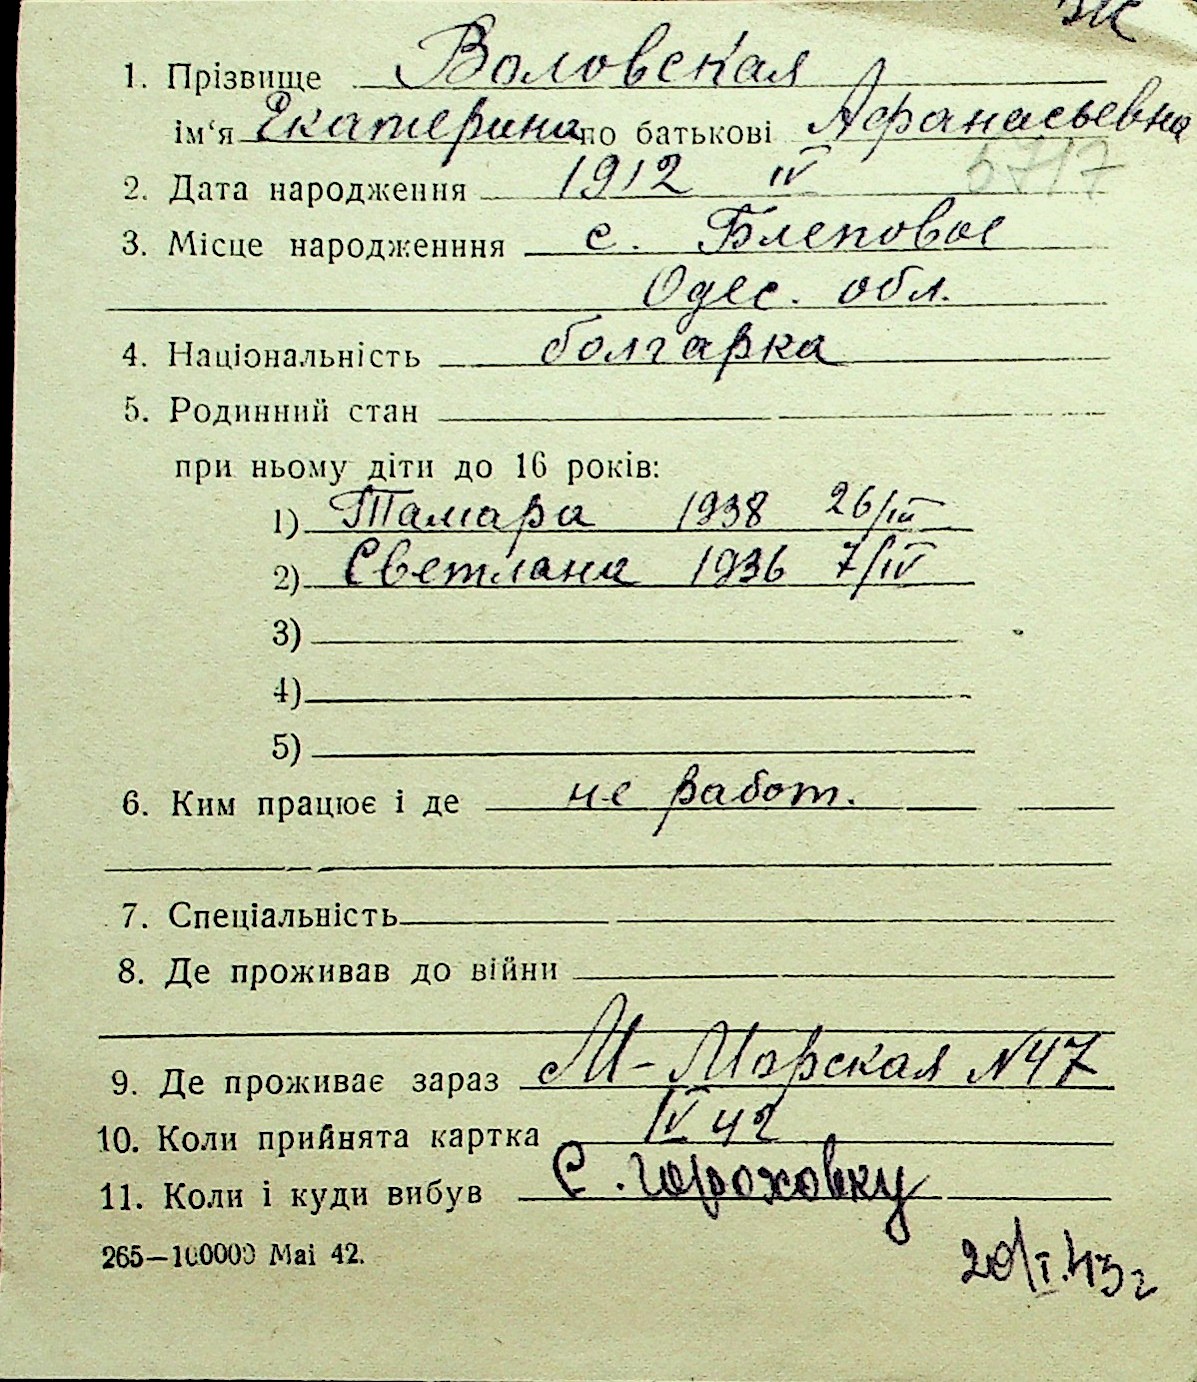 ЗК
1. Прізвище Воловская
ім‘я Екатерина по батькові Афанасьевна
2. Дата народження 1912 IV 5717
3. Місце народженння с. Блеповое
Одес. обл.
4. Національність болгарка
5. Родинний стан
при ньому діти до 16 років:
1) Тамара 1938 26/III
2) Светлана 1936 7/IV
3)
4)
5)
6. Ким працює і де не работ.
7. Спеціальність
8. Де проживав до війни
9. Де проживає зараз М-Морская №47
10. Коли прийнята картка IV 42
11. Коли і куди вибув с. Гороховку
265—100000 Маі 42.
20/I.43 г